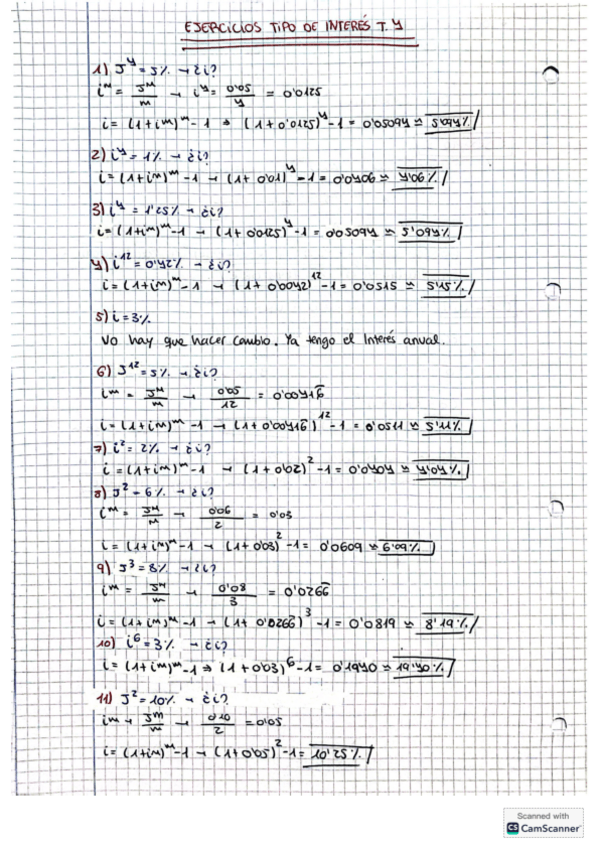 EJERCICIOS TIPO DE INTERÉS T.4
1) J⁴ = 5% → ¿i?
iᵐ = Jᴹ/m → i⁴ = 0'05/4 = 0'0125
i = (1+iᵐ)ᵐ - 1 → (1+0'0125)⁴ - 1 = 0'05094 ≈ 5'094%
2) i⁴ = 1% → ¿i?
i = (1+iᵐ)ᵐ - 1 → (1+0'01)⁴ - 1 = 0'0406 ≈ 4'06%
3) i⁴ = 1'25% → ¿i?
i = (1+iᵐ)ᵐ - 1 → (1+0'0125)⁴ - 1 = 0'05094 ≈ 5'094%
4) i¹² = 0'42% → ¿i?
i = (1+iᵐ)ᵐ - 1 → (1+0'0042)¹² - 1 = 0'0515 ≈ 5'15%
5) i = 3%.
No hay que hacer cambio. Ya tengo el interés anual.
6) J¹² = 5% → ¿i?
iᵐ = Jᴹ/m → 0'05/12 = 0'00416
i = (1+iᵐ)ᵐ - 1 → (1+0'00416)¹² - 1 = 0'0511 ≈ 5'11%
7) i² = 2% → ¿i?
i = (1+iᵐ)ᵐ - 1 → (1+0'02)² - 1 = 0'0404 ≈ 4'04%
8) J² = 6% → ¿i?
iᵐ = Jᴹ/m → 0'06/2 = 0'03
i = (1+iᵐ)ᵐ - 1 → (1+0'03)² - 1 = 0'0609 ≈ 6'09%
9) J³ = 8% → ¿i?
iᵐ = Jᴹ/m → 0'08/3 = 0'0266
i = (1+iᵐ)ᵐ - 1 → (1+0'0266)³ - 1 = 0'0819 ≈ 8'19%
10) i⁶ = 3% → ¿i?
i = (1+iᵐ)ᵐ - 1 → (1+0'03)⁶ - 1 = 0'1940 ≈ 19'40%
11) J² = 10% → ¿i?
iᵐ → Jᵐ/m → 0'10/2 = 0'05
i = (1+iᵐ)ᵐ - 1 → (1+0'05)² - 1 = 10'25%
Scanned with
CS CamScanner